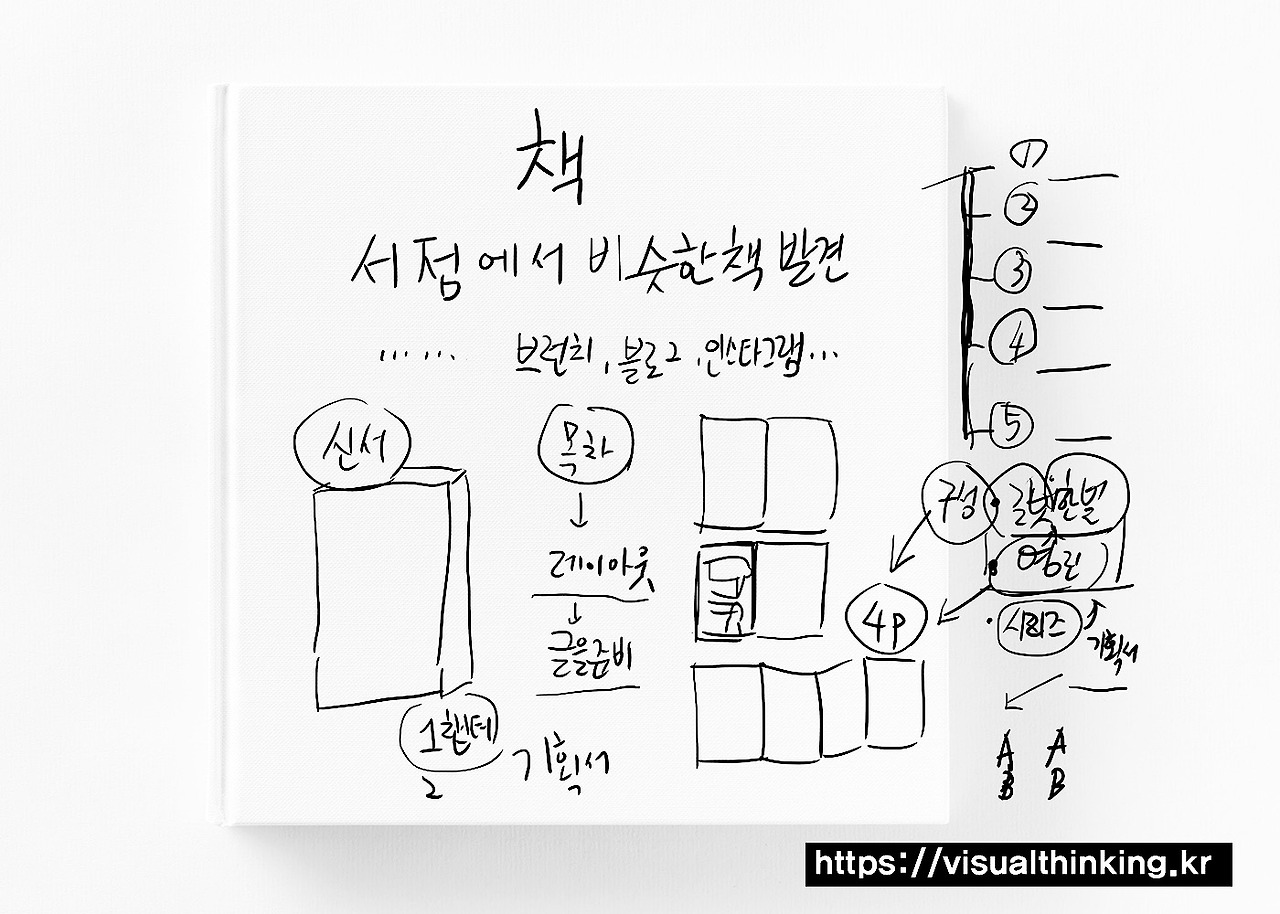 책
서점에서 비슷한책 발견
...... 브런치, 블로그, 인스타그램...
신서
목차
↓
레이아웃
↓
글을준비
1현테
2
기획서
①
②
③
④
⑤
구성
4P
시리즈
기획서
A A
B B
https://visualthinking.kr